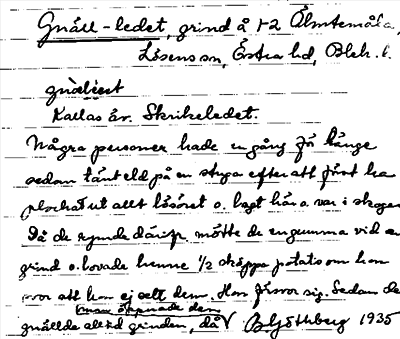 Gnäll-ledet, grind å 1-2 Älmtemåla,
Lösens sn, Östra hd, Blek. l.
gnäl
Kallas äv. Skrikeledet.
Några personer hade en gång för länge
sedan tänt eld på en stuga efter att först ha
plockat ut allt lösöret o. lagt här o. var i skogen
Då de rymde därifr. mötte de en gumma vid en
grind o. lovade henne 1/2 skäppa potatis om hon
svor att hon ej sett dem. Hon försvor sig. Sedan de
man öppnade den
gnällde alltid grinden, då V B. Göthberg 1935